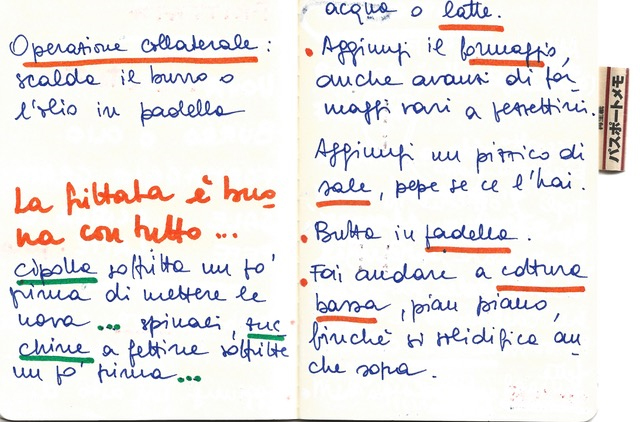 Operazione collaterale:
scalda il burro o
l'olio in padella
La frittata è buo
na con tutto ...
cipolla soffritta un po'
prima di mettere le
uova ... spinaci, zuc
chine a fettine soffritte
un po' prima ...
acqua o latte.
Aggiungi il formaggio,
anche avanzi di for
maggi vari a pezzettini.
Aggiungi un pizzico di
sale, pepe se ce l'hai.
Butta in padella.
Fai andare a cottura
bassa, pian piano,
finchè si solidifica an
che sopra.
パスポートメモ